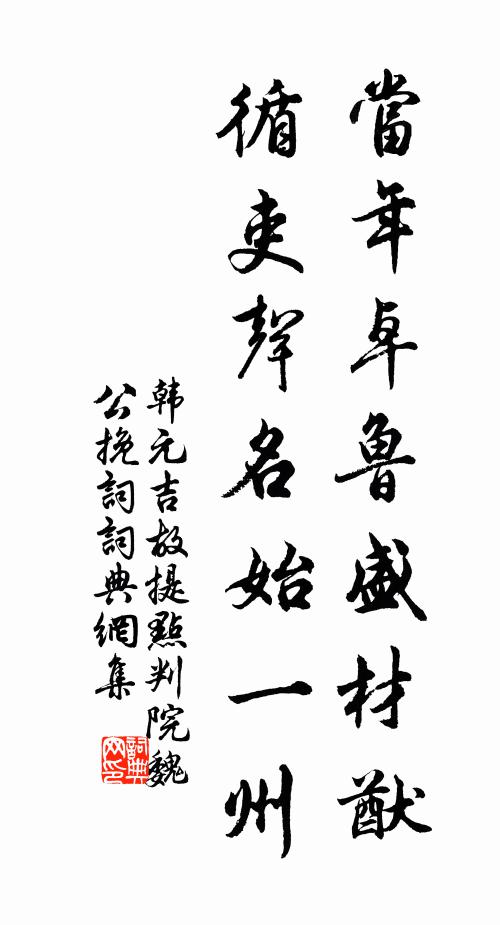 當年卓魯盛材猷
循吏聲名始一州
韩元吉故提點判院魏
公挽詞詞典網集
詞典
网印